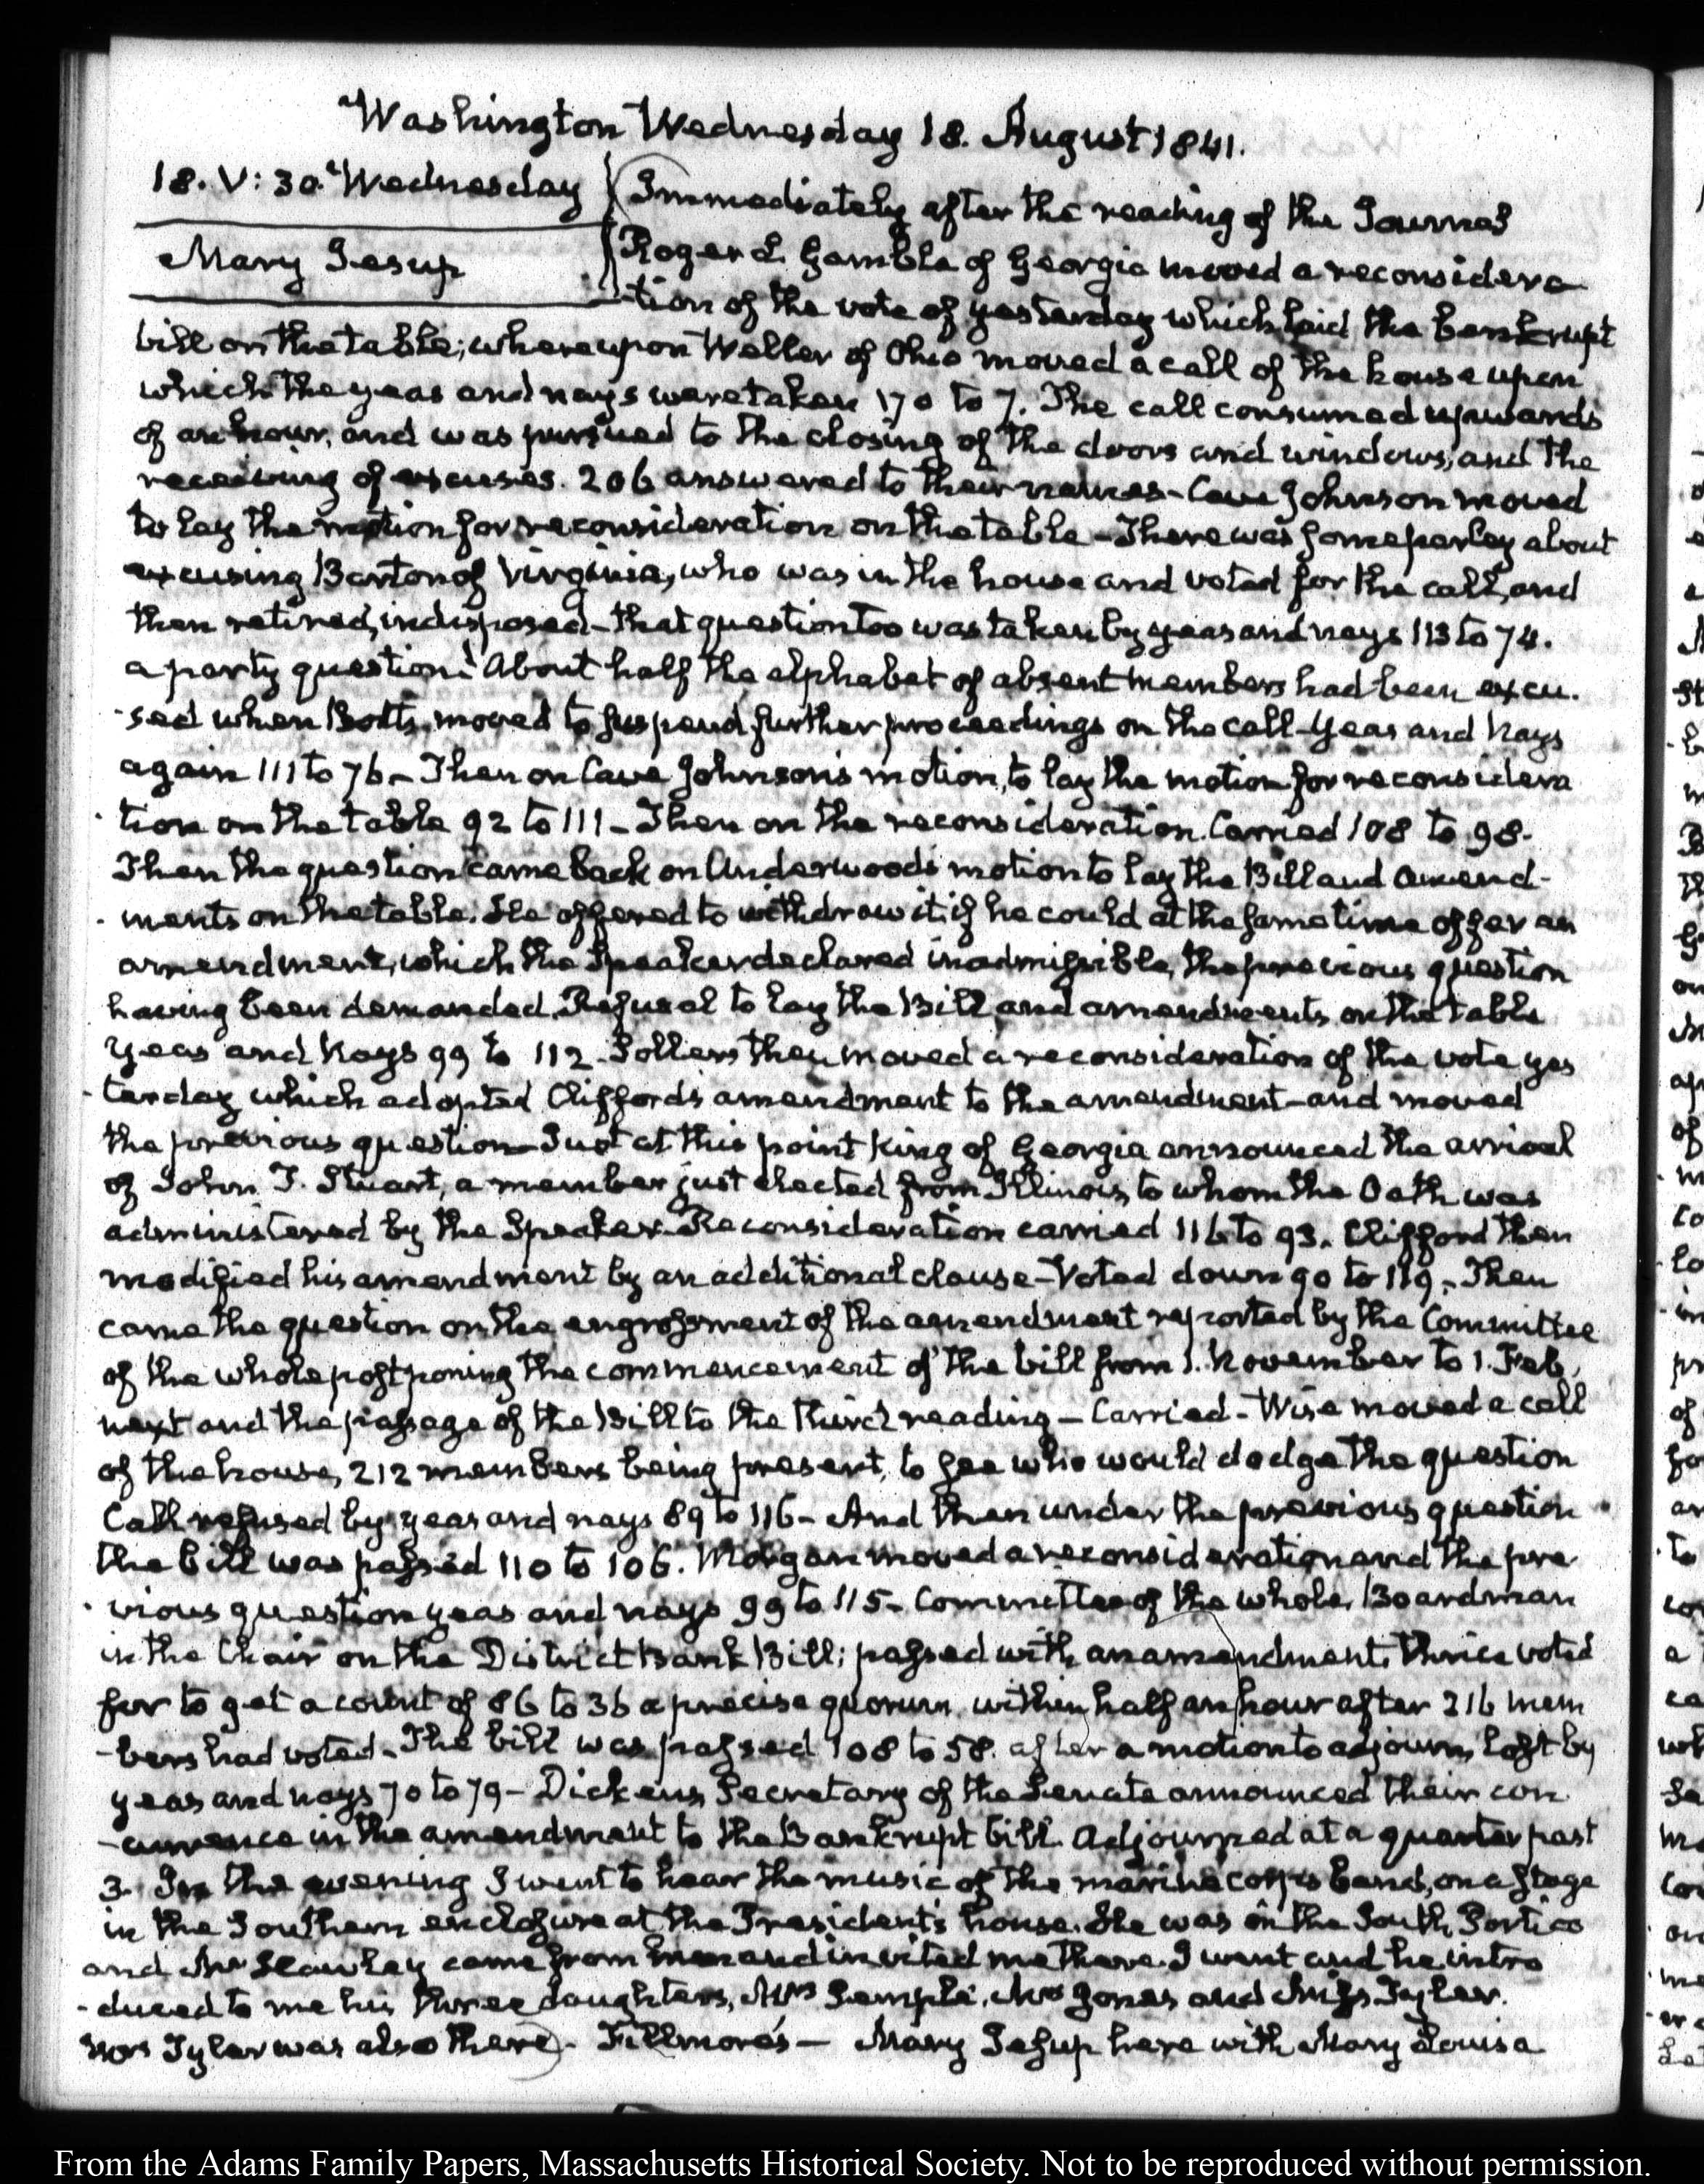 Washington Wednesday 18. August 1841.
18. V: 30. Wednesday
Mary Jesup
Immediately after the reading of the Journal
Roger L. Gamble of Georgia moved a reconsidera
tion of the vote of yesterday which laid the bankrupt
bill on the table; whereupon Weller of Ohio moved a call of the house upon
which the yeas and nays were taken 170 to 7. The call consumed upwards
of an hour, and was pursued to the closing of the doors and windows, and the
receiving of excuses. 206 answered to their names - Cave Johnson moved
to lay the motion for reconsideration on the table - There was some parley about
excusing Barton of Virginia, who was in the house and voted for the call, and
then retired, indisposed - that question too was taken by yeas and nays 113 to 74.
a party question! About half the alphabet of absent members had been excu.
-sed when Botts, moved to suspend further proceedings on the call - Yeas and Nays
again 111 to 76 - Then on Cave Johnson's motion, to lay the motion for reconsidera
-tion on the table 92 to 111 - Then on the reconsideration. Carried 108 to 98.
Then the question came back on Underwood's motion to lay the Bill and amend-
-ments on the table. He offered to withdraw it, if he could at the same time offer an
amendment, which the Speaker declared inadmissible, the previous question
having been demanded. Refusal to lay the Bill and amendments on the table
Yeas and Nays 99 to 112 - Sollers then moved a reconsideration of the vote yes
-terday which adopted Clifford's amendment to the amendment - and moved
the previous question - Just at this point King of Georgia announced the arrival
of John T. Stuart, a member just elected from Illinois, to whom the Oath was
administered by the Speaker - Reconsideration carried 116 to 93. Clifford then
modified his amendment by an additional clause - Voted down 90 to 119 - Then
came the question on the engrossment of the amendment reported by the Committee
of the whole postponing the commencement of the bill from 1. November to 1. Feb,
next and the passage of the Bill to the third reading - Carried - Wise moved a call
of the house, 212 members being present, to see who would dodge the question
Call refused by yeas and nays 89 to 116 - And then under the previous question
the bill was passed 110 to 106. Morgan moved a reconsideration and the pre
-vious question yeas and nays 99 to 115 - Committee of the whole, Boardman
in the Chair on the District Bank Bill; passed with an amendment, thrice voted
for to get a count of 86 to 36 a precise quorum, within half an hour after 216 mem
-bers had voted - The bill was passed 108 to 58. after a motion to adjourn, lost by
yeas and nays 70 to 79 - Dickens, Secretary of the Senate announced their con
-currence in the amendment to the Bankrupt bill. Adjourned at a quarter past
3. In the evening I went to hear the music of the marine corps band, on a stage
in the Southern enclosure at the President's house. He was in the South Portico
and Mr came from him and invited me there. I went and he intro
-duced to me his three daughters, Mrs Semple, Mrs Jones and Miss Tyler.
Mrs Tyler was also there). Fillmore's - Mary Jesup here with Mary Louisa
From the Adams Family Papers, Massachusetts Historical Society. Not to be reproduced without permission.